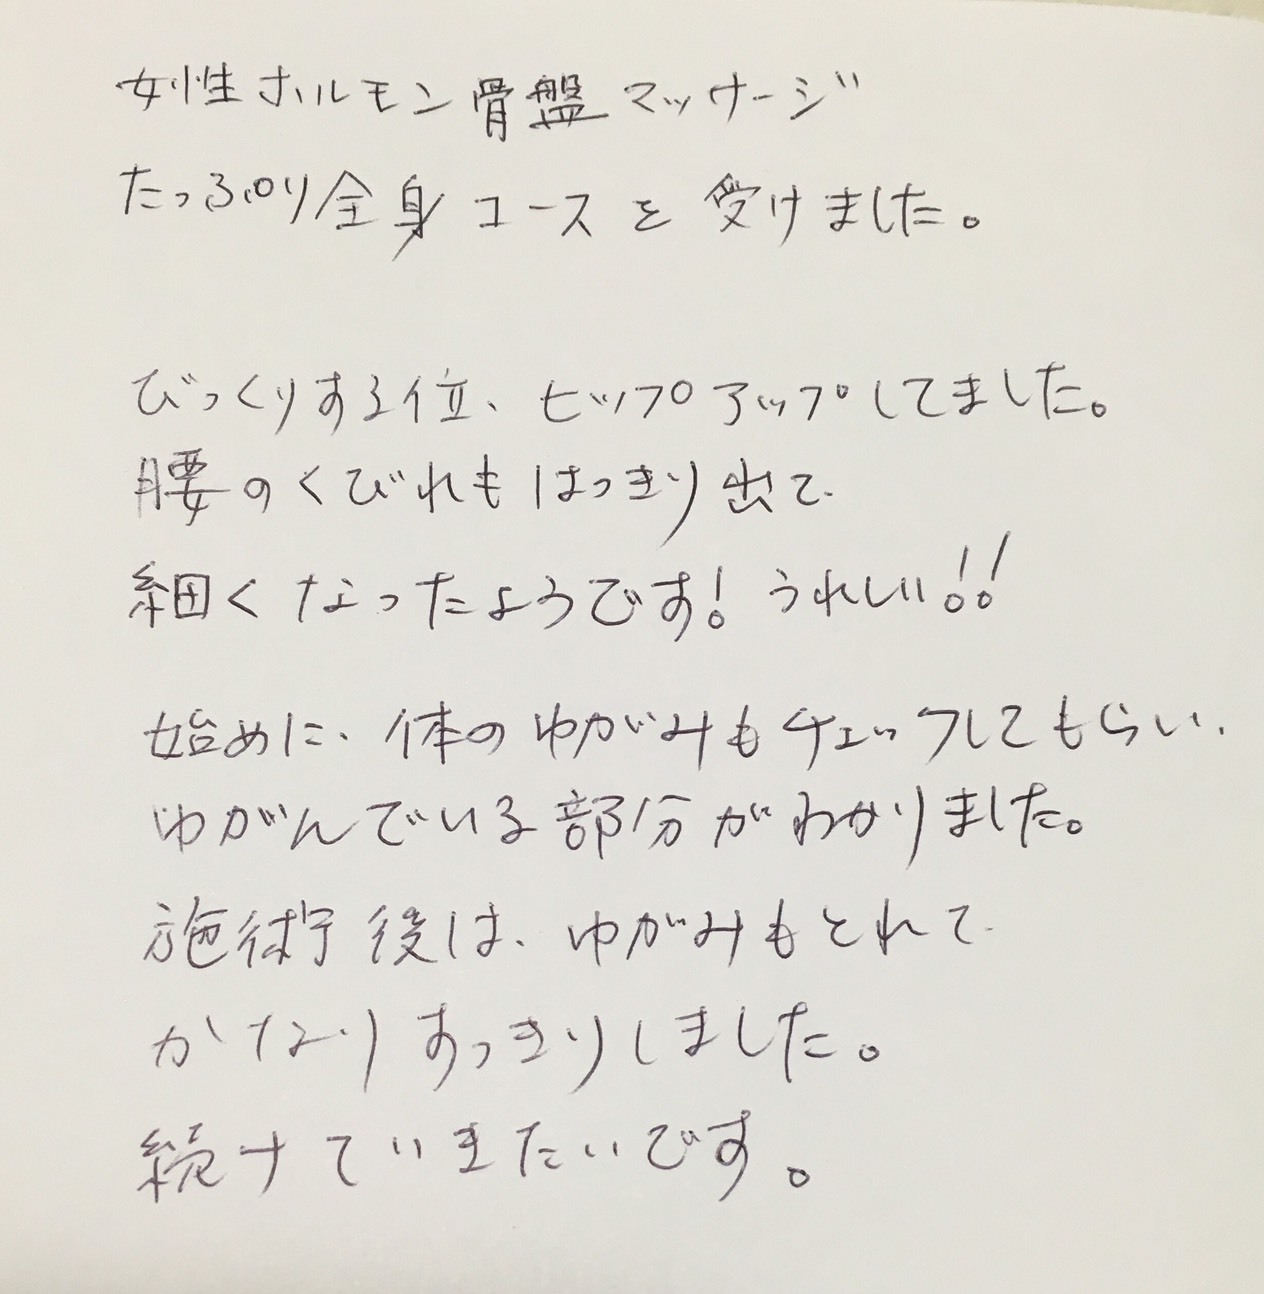 女性ホルモン骨盤マッサージ
たっぷり全身コースを受けました。
びっくりする位、ヒップアップしてました。
腰のくびれもはっきり出て、
細くなったようです!うれしい!!
始めに、体のゆがみもチェックしてもらい、
ゆがんでいる部分がわかりました。
施術後は、ゆがみもとれて、
かなりすっきりしました。
続けていきたいです。